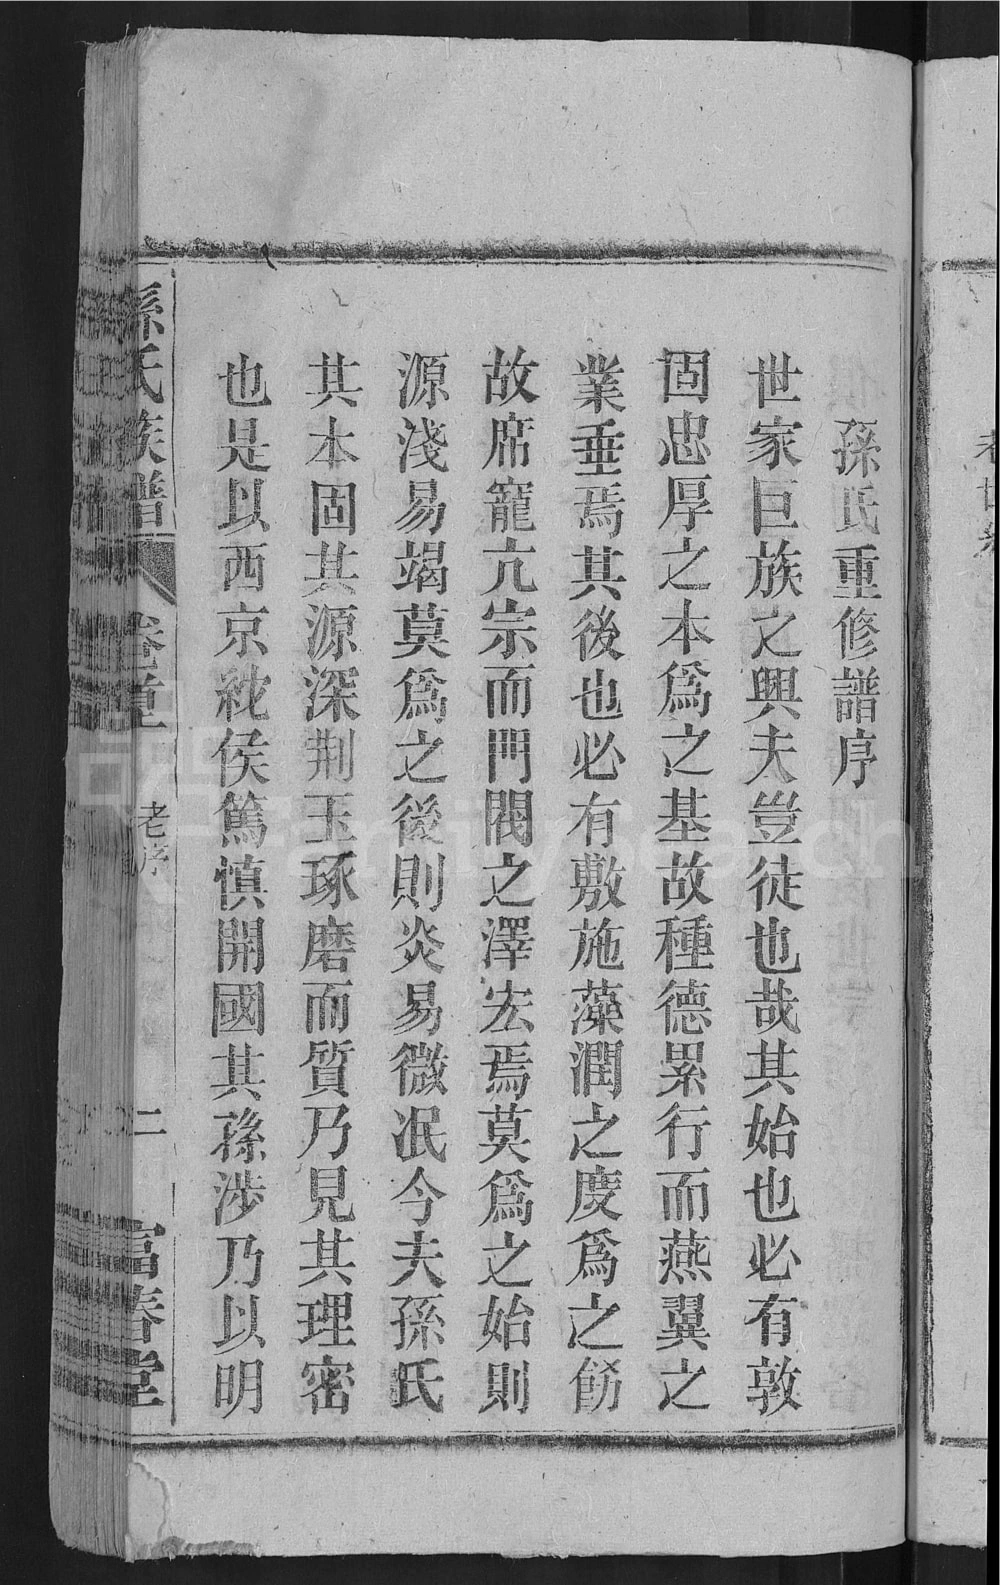 孫氏重修譜序
世家巨族之興夫豈徒也哉其始也必有敦
固忠厚之本爲之基故種德累行而燕翼之
業垂焉其後也必有敷施藻潤之度爲之飭
故席寵亢宗而門閥之澤宏焉莫爲之始則
源淺易竭莫爲之後則炎易微泯今夫孫氏
其本固其源深荆玉琢磨而質乃見其理密
也是以西京
侯篤慎開國其孫涉乃以明
孫氏族譜
卷首
老序
二
富春堂